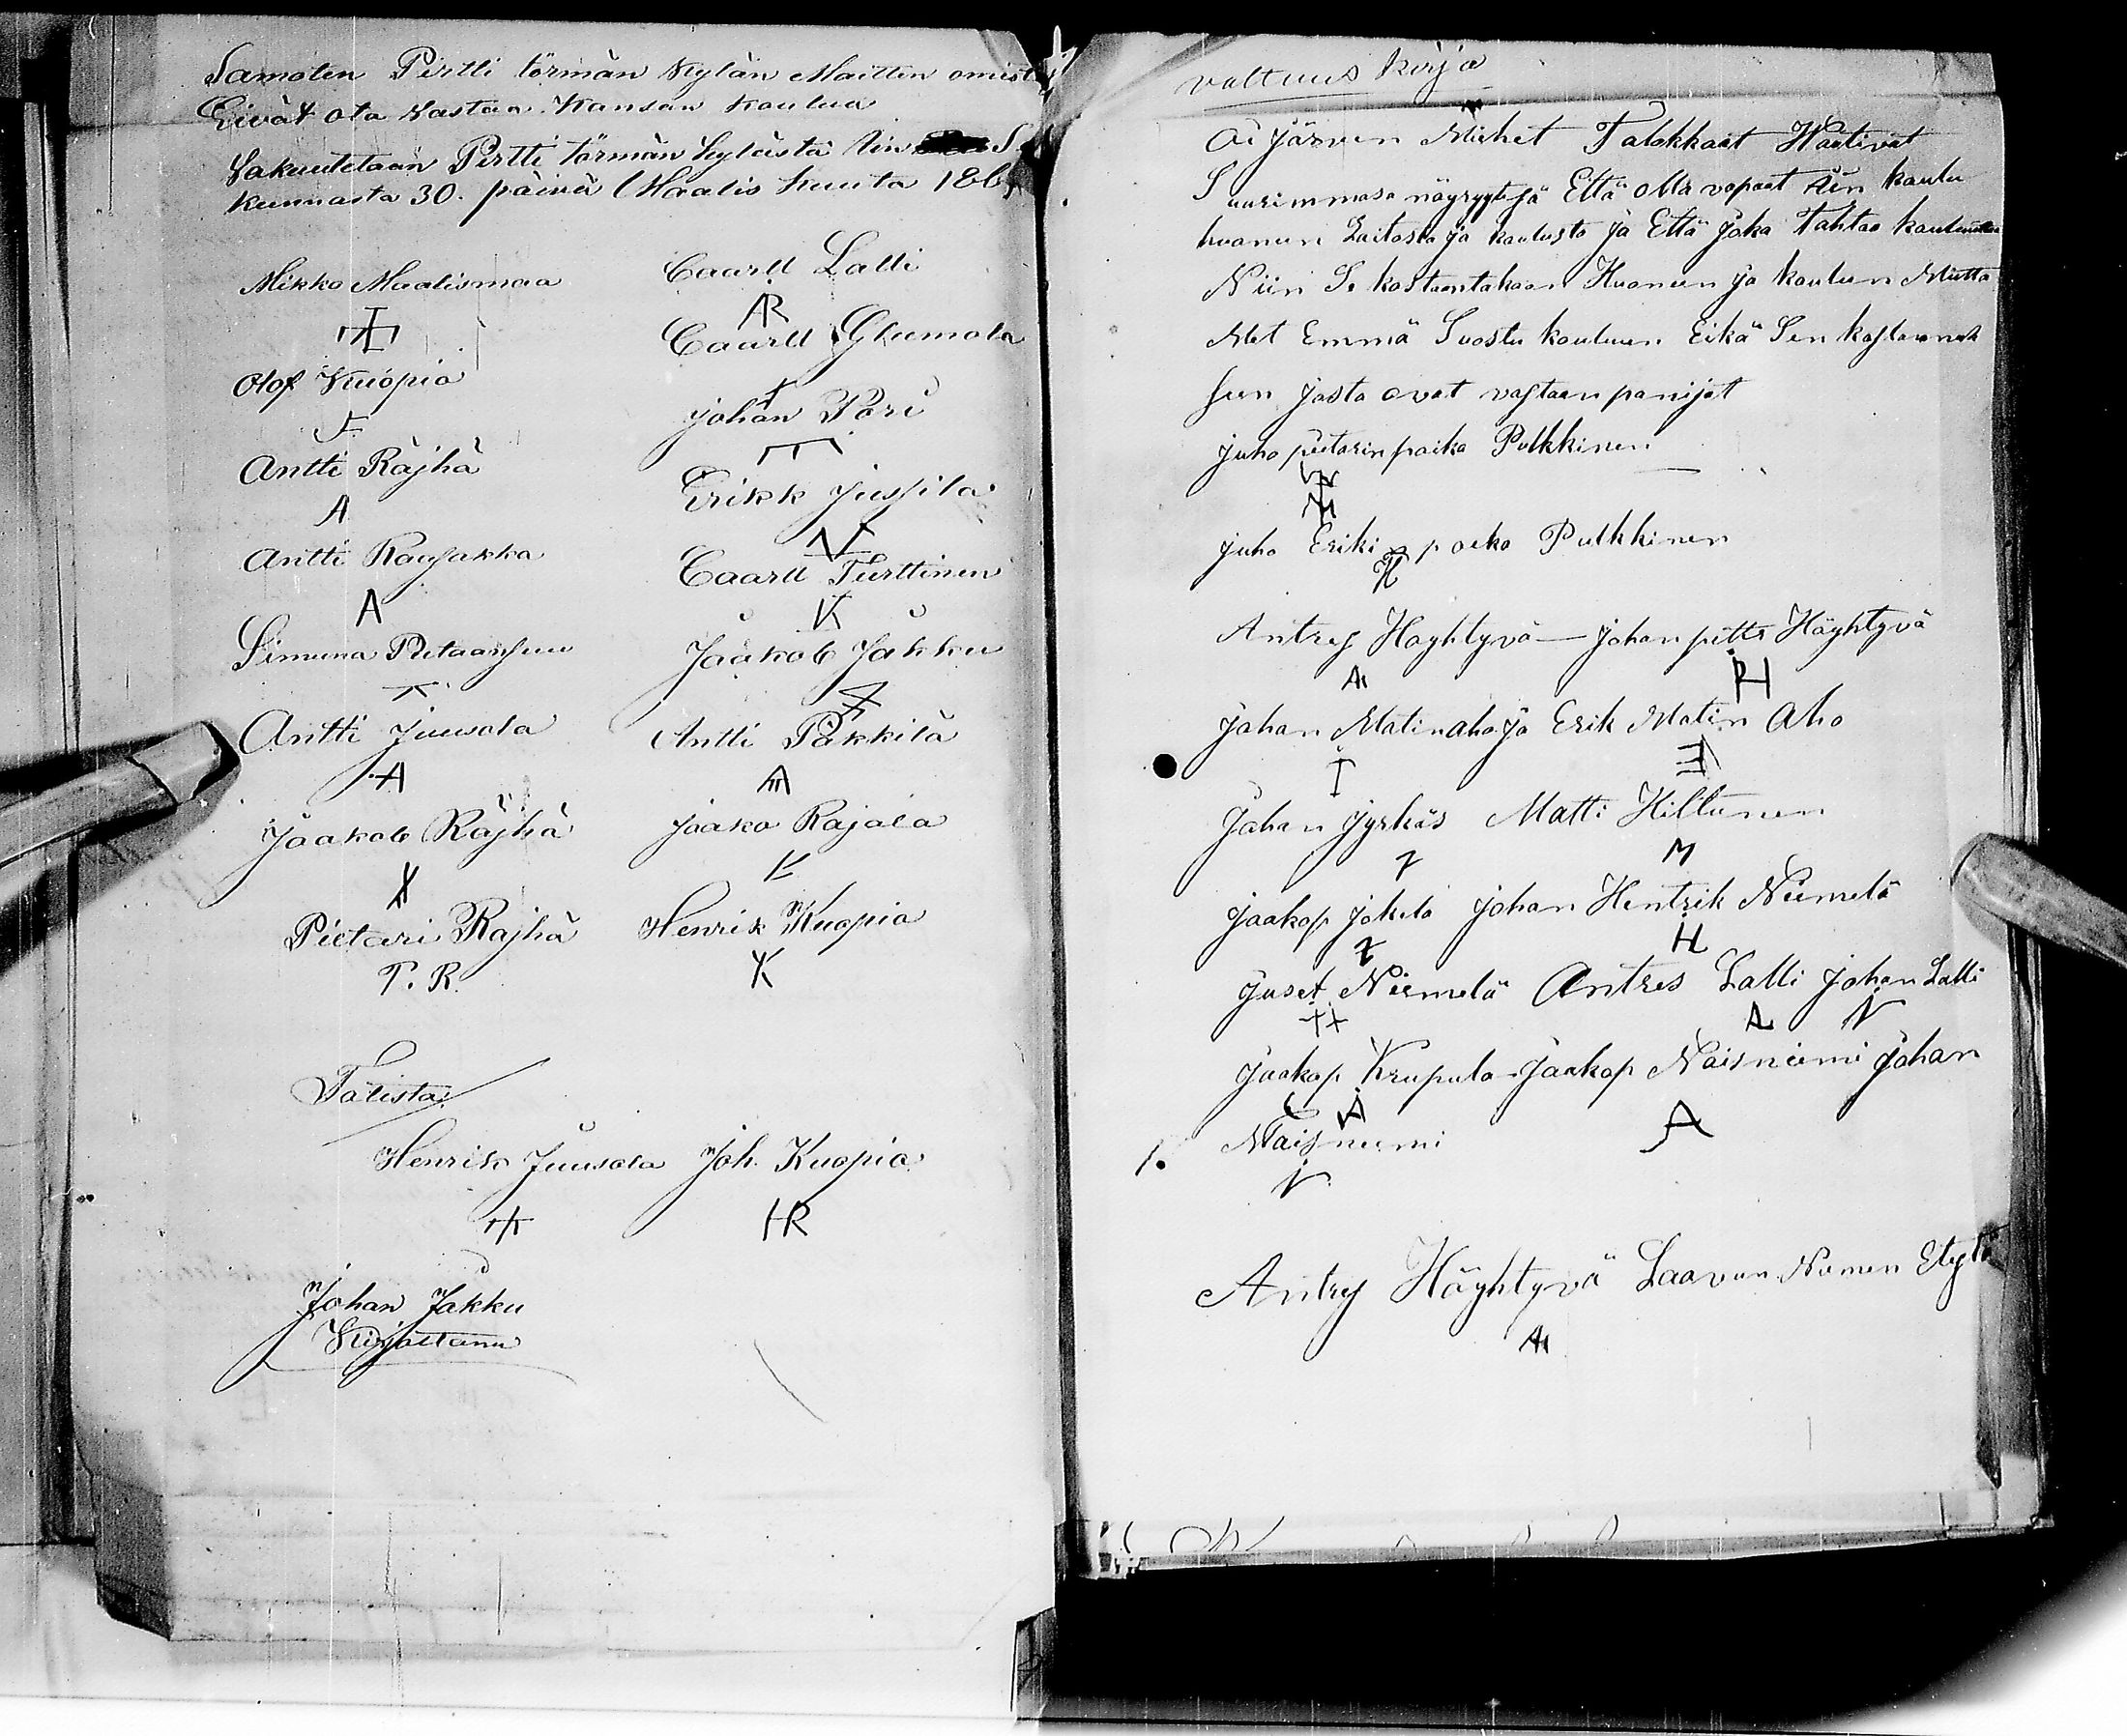 Samoten Pirtti törmän Kylän Maitten omist
Eivät ota Vastaa Kansan Koulua
Vakuutetaan Pirtti törmän kylästä Iin
kunnasta 30. päivä Maalis kuuta 186
Mikko Maalismaa
Olof Kuopio
Antti Räjhä
A
Antti Raujakka
A
Simuna Pietaansuu
Antti Juusola
A
Jaakob Räjhä
Pietari Räjhä
P. R.
Caarll Lalli
AR
Caarll Glumola
Johan Pori
Erikk Jussila
Caarll Turttinen
K
Jaakob Jakku
Antti Päkkilä
A
Jaako Rajala
Henrik Kuopio
K
Tålista
Henrik Juusola Joh. Kuopio
HR
Johan Jakku
Kirjottanu
valtuus kirja
Oi järven Miehet Talokkaat Haativat
Suurimmasa nöyryytesä Että olla vapaat Iin koulu
huonen Laitosta ja koulusta ja Että joka Tahtoo
Niin Se kostantakoon Huonen ja koulun Mutta
Met Emmä Suostu kouluun Eikä Sen kostannuk
seen josta ovat vastaan panijat
juho pietarinpoika Pulkkinen
juho Eriki poika Pulkkinen
Antres Höyhtyvä — johan pitts Höyhtyvä
A PH
johan Matinaho ja Erik Matin Aho
I
johan jyrkäs Matti Hiltunen
M
jaakop jokela johan Hentrik Niemelä
H
juset Niemelä Antres Lalli johan Lalli
jaakop Krupula jaakop Naisniemi johan
A
Naisniemi
1.
Antres Höyhtyvä Laavun Nomen Etys